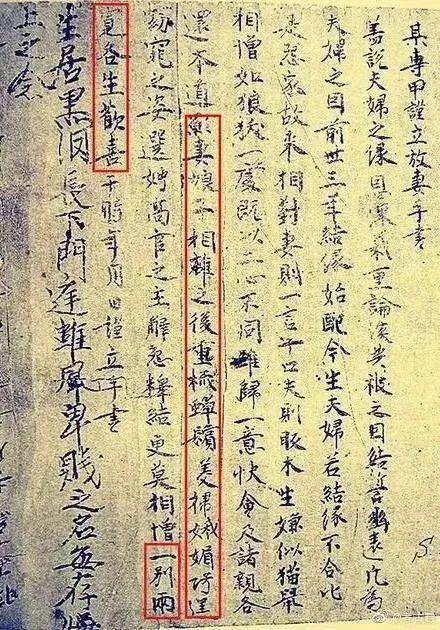 某專甲謹立放妻手書
蓋說夫婦之緣恩深義重論談共被之因結誓幽遠凡為
夫婦之因前世三年結緣始配今生夫婦若結緣不合比
是怨家故來相對妻則一言十口夫則販木生嫌似猫鼠
相憎如狼犺一處既以二心不同難歸一意快會及諸親各
還本道願妻娘子相離之後重梳蟬鬢美掃娥媚巧逞
窈窕之姿選娉高官之主解怨釋結更莫相憎一別兩
寬各生歡喜于時年月日謹立手書
生居長下門庭雖卑賤之名存
上之念